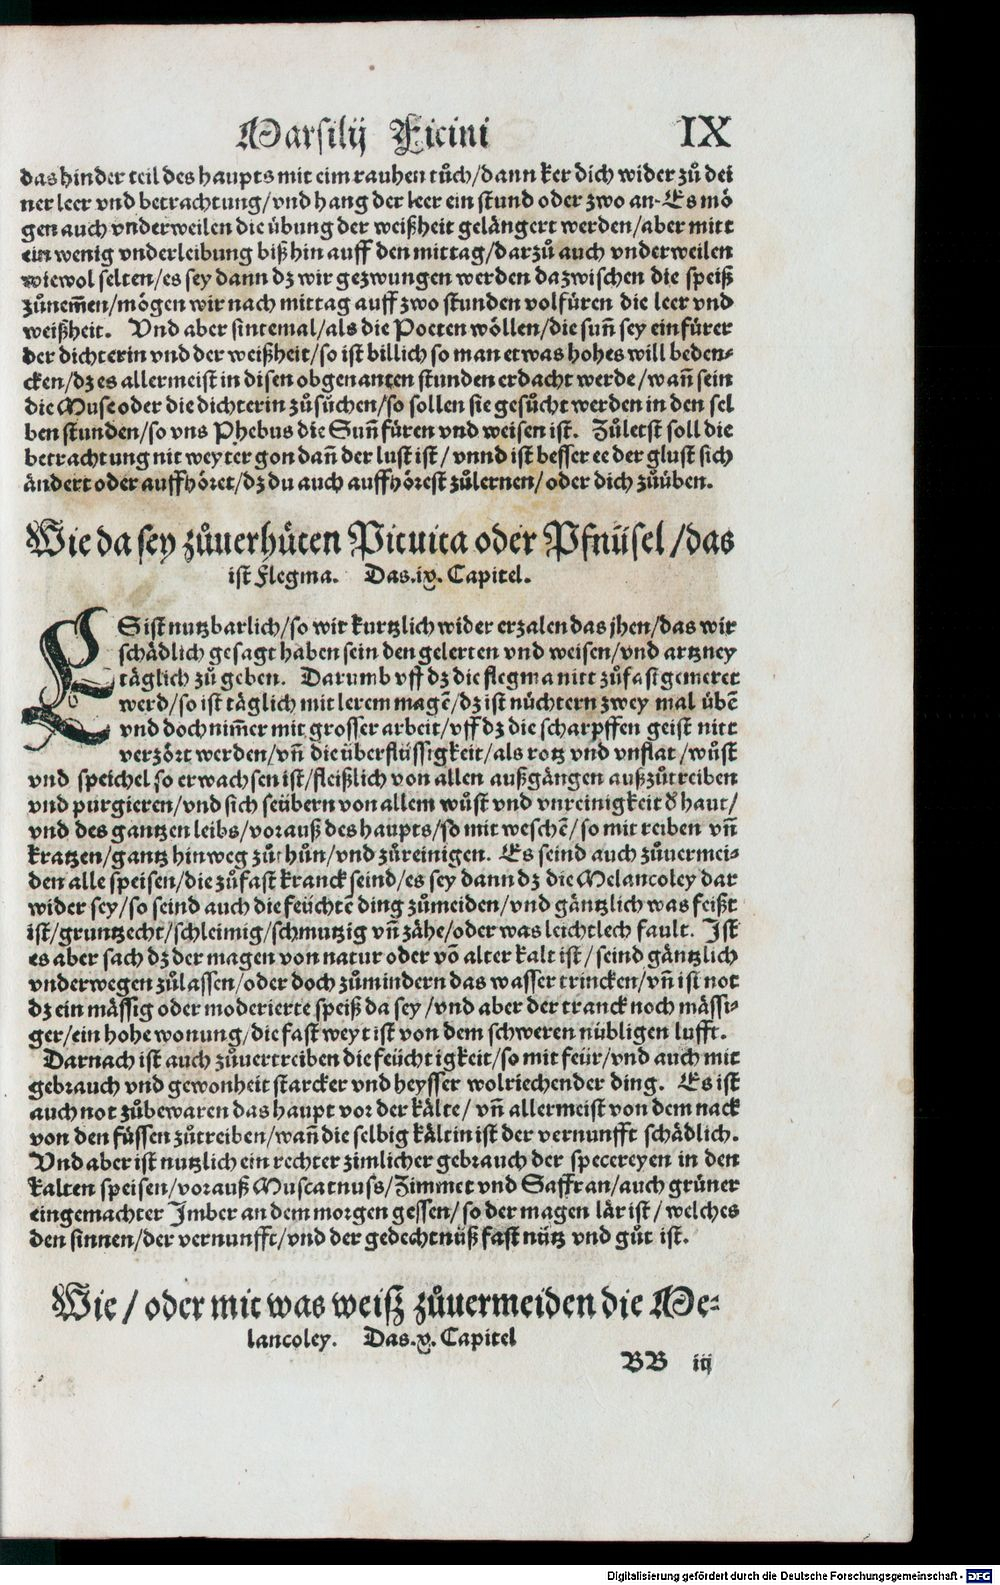 Marsilij Ficini IX
das hinder teil des haupts mit eim rauhen tůch/dann ker dich wider zů dei
ner leer vnd betrachtung/vnd hang der leer ein stund oder zwo an. Es mö
gen auch vnderweilen die übung der weißheit gelängert werden/aber mitt
ein wenig vnderleibung biß hin auff den mittag/darzů auch vnderweilen
wiewol selten/es sey dann dz wir gezwungen werden dazwischen die speiß
zůnem̃en/mögen wir nach mittag auff zwo stunden volfüren die leer vnd
weißheit. Vnd aber sintemal/als die Poeten wöllen/die sun̄ sey ein fürer
der dichterin vnd der weißheit/so ist billich so man etwas hohes will beden-
cken/dz es allermeist in disen obgenanten stunden erdacht werde/wan̄ sein
die Muse oder die dichterin zůsůchen/so sollen sie gesůcht werden in den sel
ben stunden/so vns Phebus die Sun̄ füren vnd weisen ist. Zůletst soll die
betrachtung nit weyter gon dan̄ der lust ist/vnnd ist besser ee der glust sich
ändert oder auffhöret/dz du auch auffhörest zůlernen/oder dich zůüben.
Wie da sey zůuerhůten Pituita oder Pfnüsel/das
ist Flegma. Das.ix. Capitel.
ES ist nutzbarlich/so wir kurtzlich wider erzalen das jhen/das wir
schädlich gesagt haben sein den gelerten vnd weisen/vnd artzney
täglich zů geben. Darumb vff dz die flegma nitt zůfast gemeret
werd/so ist täglich mit lerem magē/dz ist nüchtern zwey mal übē
vnd doch nim̄er mit grosser arbeit/vff dz die scharpffen geist nitt
verzört werden/vn̄ die überflüssigkeit/als rotz vnd vnflat/wůst
vnd speichel so erwachsen ist/fleißlich von allen außgängen außzůtreiben
vnd purgieren/vnd sich seübern von allem wůst vnd vnreinigkeit ð haut/
vnd des gantzen leibs/vorauß des haupts/so mit weschē/so mit reiben vn̄
kratzen/gantz hinweg zůthůn/vnd zůreinigen. Es seind auch zůuermei-
den alle speisen/die zůfast kranck seind/es sey dann dz die Melancoley dar
wider sey/so seind auch die feüchtē ding zůmeiden/vnd gäntzlich was feißt
ist/gruntzecht/schleimig/schmutzig vn̄ zähe/oder was leichtlech fault. Ist
es aber sach dz der magen von natur oder vō alter kalt ist/seind gäntzlich
vnderwegen zůlassen/oder doch zůmindern das wasser trincken/vn̄ ist not
dz ein mässig oder moderierte speiß da sey/vnd aber der tranck noch mässi-
ger/ein hohe wonung/die fast weyt ist von dem schweren nübligen lufft.
Darnach ist auch zůuertreiben die feüchtigkeit/so mit feür/vnd auch mit
gebrauch vnd gewonheit starcker vnd heysser wolriechender ding. Es ist
auch not zůbewaren das haupt vor der kälte/vn̄ allermeist von dem nack
von den füssen zůtreiben/wan̄ die selbig kältin ist der vernunfft schädlich.
Vnd aber ist nutzlich ein rechter zimlicher gebrauch der specereyen in den
kalten speisen/vorauß Muscatnuss/Zimmet vnd Saffran/auch grüner
eingemachter Imber an dem morgen gessen/so der magen lär ist/welches
den sinnen/der vernunfft/vnd der gedechtnüß fast nütz vnd gůt ist.
Wie/oder mit was weiß zůuermeiden die Me-
lancoley. Das.x. Capitel
BB iij
Digitalisierung gefördert durch die Deutsche Forschungsgemeinschaft - DFG